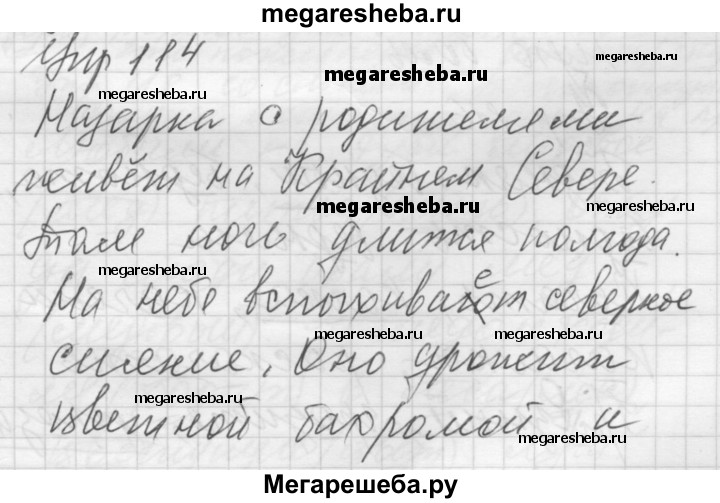 megaresheba.ru
Упр 114
megaresheba.ru
megaresheba.ru
Назарка с родителями
megaresheba.ru
живёт на Крайнем Севере.
megaresheba.ru
megaresheba.ru
Там ночь длится полгода.
megaresheba.ru
На небе вспыхивает северное
megaresheba.ru
megaresheba.ru
сияние. Оно дрожит
megaresheba.ru
цветной бахромой и
megaresheba.ru
Мегарешеба.ру